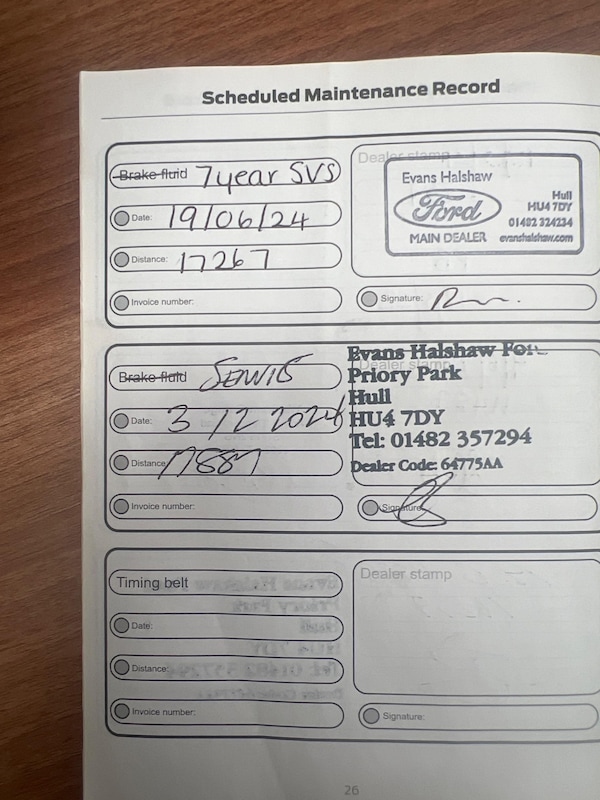 Scheduled Maintenance Record
Brake fluid 7 year SVS
Date: 19/06/24
Distance: 17267
Invoice number:
Dealer stamp
Evans Halshaw
Ford
MAIN DEALER
Hull
HU4 7DY
01482 324234
evanshalshaw.com
Signature:
Brake fluid
Date: 3/12 2024
Distance:
Invoice number:
Dealer stamp
Evans Halshaw
Priory Park
Hull
HU4 7DY
Tel: 01482 357294
Dealer Code: 64775AA
Signature:
Timing belt
Date:
Distance:
Invoice number:
Dealer stamp
Signature:
26